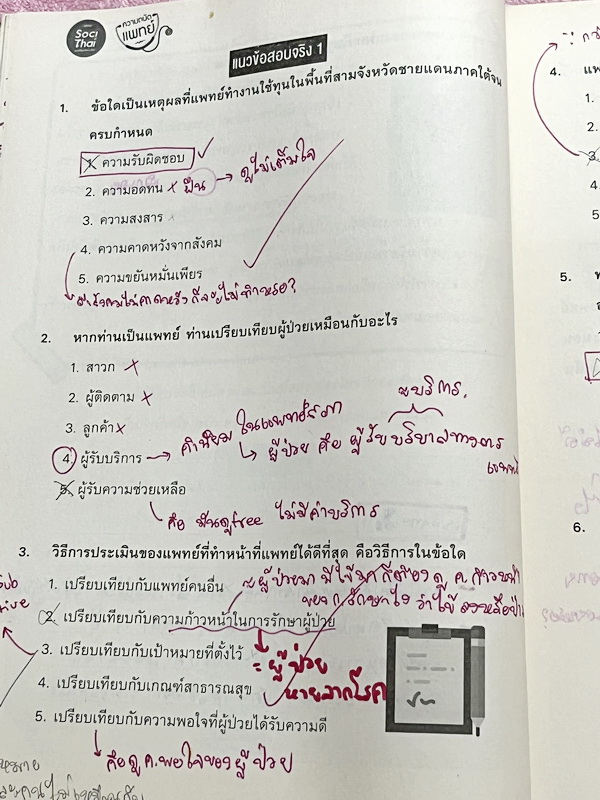 Soci Thai
ความถนัด
แพทย์
แนวข้อสอบจริง 1
1. ข้อใดเป็นเหตุผลที่แพทย์ทำงานใช้ทุนในพื้นที่สามจังหวัดชายแดนภาคใต้จน
ครบกำหนด
1. ความรับผิดชอบ
2. ความอดทน × ฝืน → ดูไม่เต็มใจ
3. ความสงสาร ×
4. ความคาดหวังจากสังคม
5. ความขยันหมั่นเพียร
2. หากท่านเป็นแพทย์ ท่านเปรียบเทียบผู้ป่วยเหมือนกับอะไร
1. สาวก ×
2. ผู้ติดตาม ×
3. ลูกค้า ×
≈ บริการ.
4. ผู้รับบริการ → คำนิยม ในแพทย์สภา
↳ ผู้ป่วย คือ ผู้รับบริบาลทางการ
แพทย์
5. ผู้รับความช่วยเหลือ
คือ มันดูfree ไม่มีค่าบริการ
3. วิธีการประเมินของแพทย์ที่ทำหน้าที่แพทย์ได้ดีที่สุด คือวิธีการในข้อใด
1. เปรียบเทียบกับแพทย์คนอื่น
2. เปรียบเทียบกับความก้าวหน้าในการรักษาผู้ป่วย
3. เปรียบเทียบกับเป้าหมายที่ตั้งไว้
= ผู้ป่วย
หายจากโรค
4. เปรียบเทียบกับเกณฑ์สาธารณสุข
5. เปรียบเทียบกับความพอใจที่ผู้ป่วยได้รับความดี
คือดู ค.พอใจของผู้ป่วย
4.
1.
2.
3.
4.
5.
5.
6.